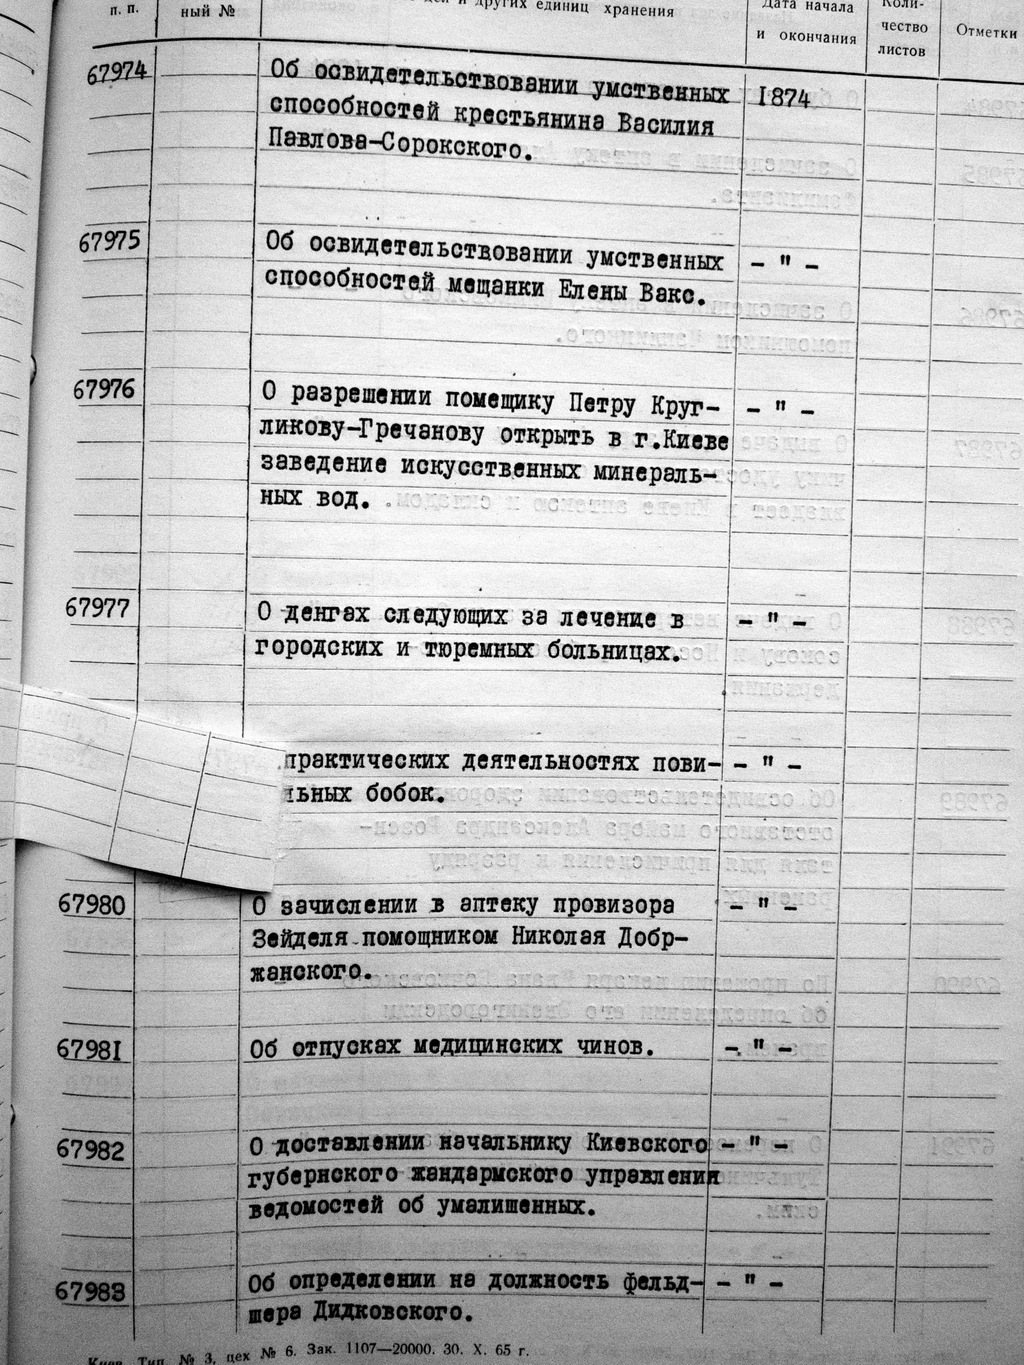 п. п. ный № и других единиц хранения Дата начала и окончания Коли-чество листов Отметки
67974 Об освидетельствовании умственных 1874
способностей крестьянина Василия
Павлова-Сорокского.
67975 Об освидетельствовании умственных - " -
способностей мещанки Елены Вакс.
67976 О разрешении помещику Петру Круг- - " -
ликову-Гречанову открыть в г.Киеве
заведение искусственных минераль-
ных вод.
67977 О денгах следующих за лечение в - " -
городских и тюремных больницах.
практических деятельностях пови- - " -
льных бобок.
67980 О зачислении в аптеку провизора - " -
Зейделя помощником Николая Добр-
жанского.
67981 Об отпусках медицинских чинов. - " -
67982 О доставлении начальнику Киевского - " -
губернского жандармского управления
ведомостей об умалишенных.
67983 Об определении на должность фельд- - " -
шера Дидковского.
Тип. № 3, цех № 6. Зак. 1107—20000. 30. X. 65 г.